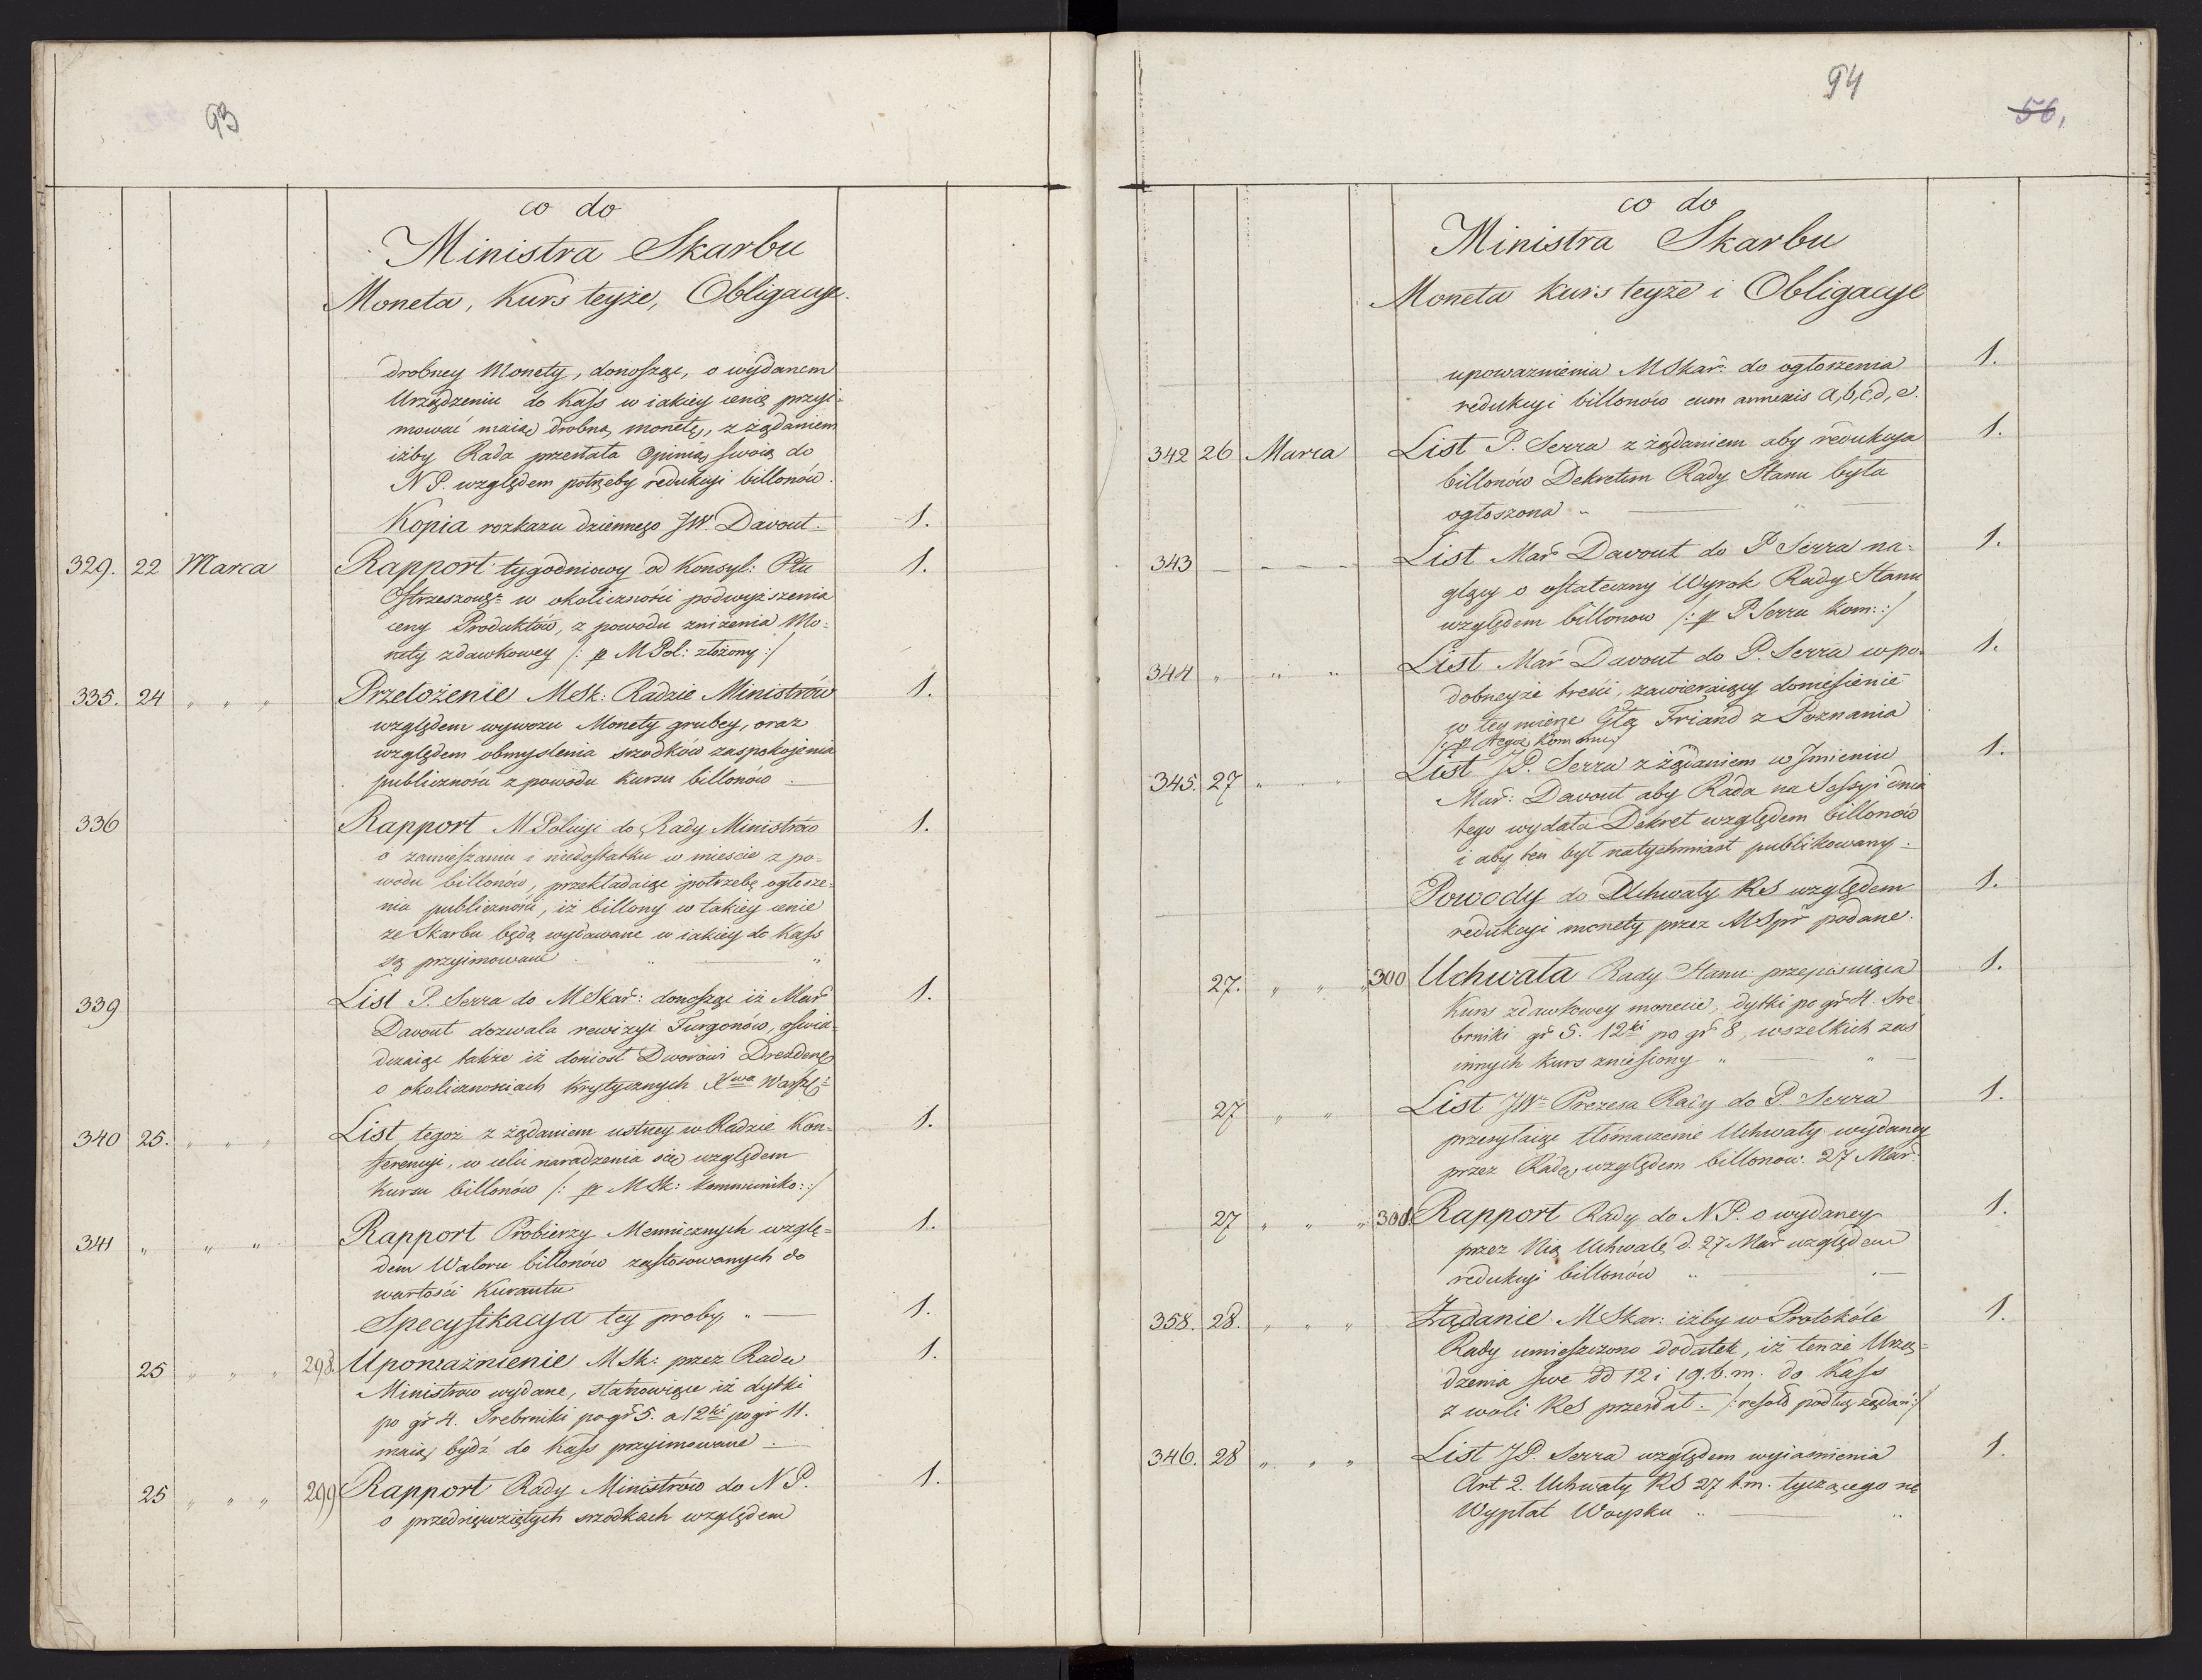 93
co do
Ministra Skarbu
Moneta, Kurs teyże, Obligacye.
drobney Monety, donosząc, o wydanem
Urządzeniu do Kass w iakiey cenie przyi-
mować maią drobną monetę, z żądaniem
iżby Rada przesłała Opinią swoią do
N P. względem potrzeby redukcyi billonów.
Kopia rozkazu dziennego JW. Davout. 1.
329. 22 Marca Rapport tygodniowy od Konsyl: Ptu 1.
Ostrzeszowg: w okoliczności podwyższenia
ceny Produktów, z powodu zniżenia Mo-
nety zdawkowey /: p M Pol: złożony :/
335. 24 " " " Przełożenie MSk: Radzie Ministrów 1.
względem wywozu Monety grubey, oraz
względem obmyslenia srzodków zaspokojenia
publiczności z powodu Kursu billonów
336 Rapport M Policyi do Rady Ministrów 1.
o zamieszaniu i niedostatku w miescie z po-
wodu billonów, przekładaiąc potrzebę ogłosze-
nia publiczności, iż billony w takiey cenie
ze Skarbu będą wydawane w iakiey do Kass
są przyimowane
339 List P. Serra do M Skar: donosząc iż Mar 1.
Davout dozwala rewizyi Furgonów, oswia-
dczaiąc także iż doniosł Dworowi Drezdeng
o okolicznościach krytycznych Xwa Warszg:
340 25. " " " List tegoż z żądaniem ustney w Radzie Kon- 1.
ferencyi, w celu naradzenia się względem
Kursu billonów /: p M Sk: kommuniko: :/
341 " " " Rapport Probierzy Mennicznych wzglę- 1.
dem Waloru billonów zastosowanych do
wartości Kurantu
Specyfikacya tey proby " 1.
25 " " " 298. Upoważnienie M Sk: przez Radę 1.
Ministrow wydane, stanowiące iż dytki
po gr 4. Srebrniki po gr 5. a 12ki po gr 11.
maią bydź do Kass przyimowane.
25 " " " 299 Rapport Rady Ministrów do N P. 1.
o przedsięwziętych srzodkach względem
94
56,
co do
Ministra Skarbu
Moneta Kurs teyże i Obligacye
upoważnienia M Skar: do ogłoszenia 1.
redukcyi billonów cum annexis a, b, c, d, e.
342 26 Marca List P. Serra z żądaniem aby redukcya 1.
billonów Dekretem Rady Stanu była
ogłoszona "
343 List Mar Davout do P Serra na- 1.
glący o ostateczny Wyrok Rady Stanu
względem billonow /: p P Serra kom: :/
344 " " " List Mar Davout do P. Serra w po- 1.
dobneyże tresci, zawieraiący doniesienie
w tey mierze Gła Friand z Poznania
/: p tegoż
345. 27 " List JP. Serra z żądaniem w Imieniu 1.
Mar: Davout aby Rada na Sessyi dnia
tego wydała Dekret względem billonów
i aby ten był natychmiast publikowany.
Powody do Uchwały RS względem 1.
redukcyi monety przez M Spr podane.
27. " " " 300 Uchwała Rady Stanu przepisuiąca 1.
Kurs zdawkowey monecie, dytki po gr 4. Sre-
brniki gr 5. 12ki po gr 8, wszelkich zas
innych kurs zniesiony "
27 " " List JW Prezesa Rady do P. Serra 1.
przesyłaiąc tłómaczenie Uchwały wydaney
przez Radę względem billonow. 27 Mar:
27 " " " 301. Rapport Rady do N P. o wydaney 1.
przez Nią Uchwale d. 27 Mar względem
redukcyi billonów "
358. 28. " " " Żądanie M Skar: iżby w Protokóle 1.
Rady umieszczono dodatek, iż tenże Urzą-
dzenia swe dd 12 i 19. b. m. do Kass
z woli RS przesłał. /: resold podług żądań :/
346. 28 " " " List JP. Serra względem wyiasnienia 1.
Art 2. Uchwały RS 27 b. m. tyczącego się
Wypłat Woysku "